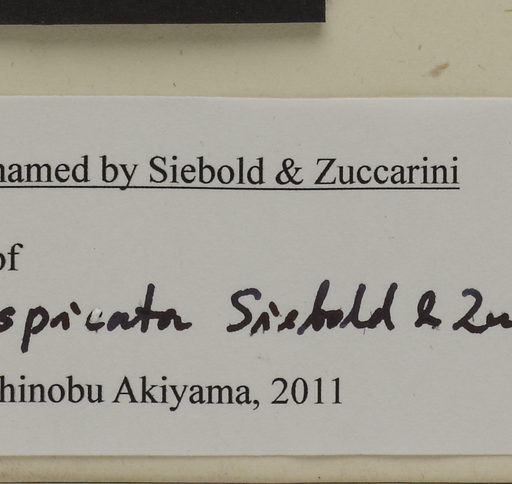 named by Siebold & Zuccarini
of
spicata Siebold & Zu
hinobu Akiyama, 2011